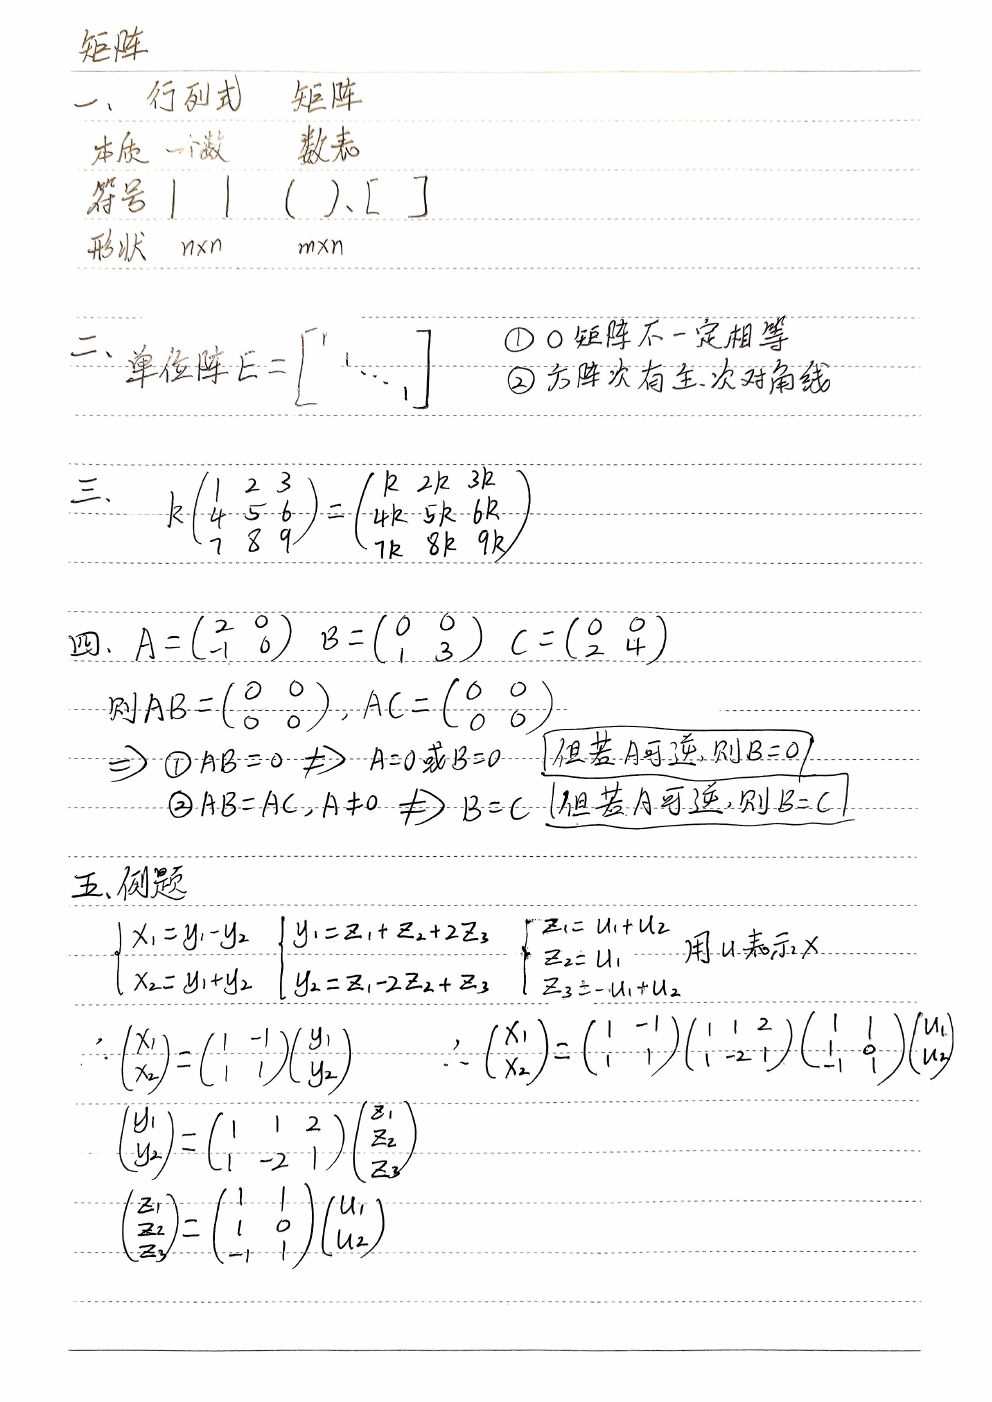 矩阵
一、行列式 矩阵
本质 一个数 数表
符号 | | ( )、[ ]
形状 n×n m×n
二、单位阵E=[1 1 ⋱ 1] ① 0矩阵不一定相等
② 方阵次有主、次对角线
三、 k(1 2 3
4 5 6
7 8 9)=(k 2k 3k
4k 5k 6k
7k 8k 9k)
四、A=(2 0
-1 0) B=(0 0
1 3) C=(0 0
2 4)
则AB=(0 0
0 0), AC=(0 0
0 0)
⇒ ①AB=0 ⇏ A=0或B=0 但若A可逆,则B=0
②AB=AC,A≠0 ⇏ B=C 但若A可逆,则B=C
五、例题
{x₁=y₁-y₂ {y₁=z₁+z₂+2z₃ {z₁=u₁+u₂
z₂=u₁ 用u表示x
x₂=y₁+y₂ y₂=z₁-2z₂+z₃ z₃=-u₁+u₂
∴(x₁
x₂)=(1 -1
1 1)(y₁
y₂) ∴(x₁
x₂)=(1 -1
1 1)(1 1 2
1 -2 1)(1 1
1 0
-1 1)(u₁
u₂)
(y₁
y₂)=(1 1 2
1 -2 1)(z₁
z₂
z₃)
(z₁
z₂
z₃)=(1 1
1 0
-1 1)(u₁
u₂)